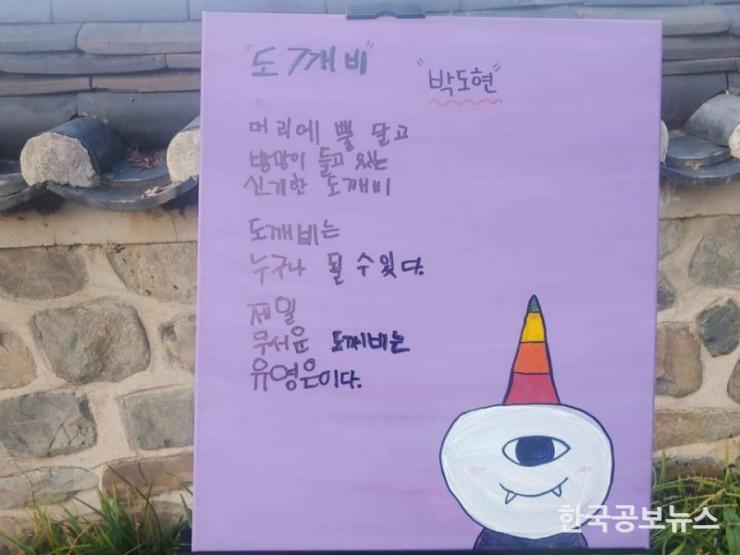 "도깨비"
"박도현"
머리에 뿔 달고
방망이 들고 있는
신기한 도깨비
도깨비는
누구나 될 수 있다.
제일
무서운 도깨비는
유영은이다.
한국공보뉴스